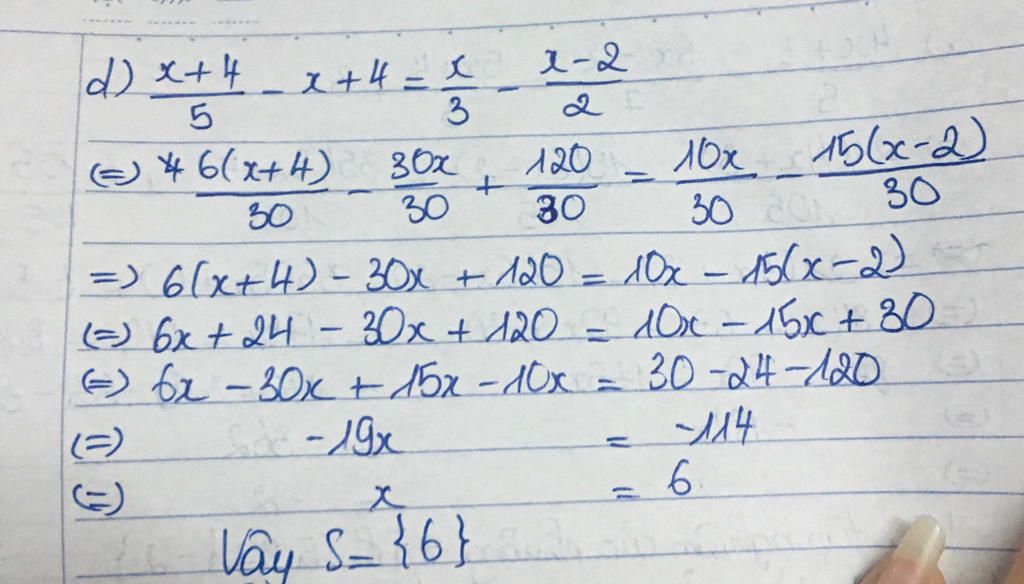 d) \frac{x+4}{5} - x + 4 = \frac{x}{3} - \frac{x-2}{2}
(=) \frac{6(x+4)}{30} - \frac{30x}{30} + \frac{120}{30} = \frac{10x}{30} - \frac{15(x-2)}{30}
=) 6(x+4) - 30x + 120 = 10x - 15(x-2)
(=) 6x + 24 - 30x + 120 = 10x - 15x + 30
(=) 6x - 30x + 15x - 10x = 30 - 24 - 120
(=) -19x = -114
(=) x = 6
Vậy S = {6}